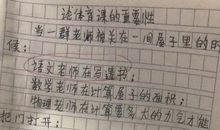 论体育课的重要性
当一群老师被关在一间屋子里的时
候:
语文老师在写遗书;
数学老师在计算屋子的面积;
物理老师在计算要多大的力才能
把门打开;